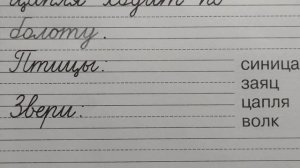 цапля ходит по
болоту.
Птицы: синица
заяц
Звери: цапля
волк